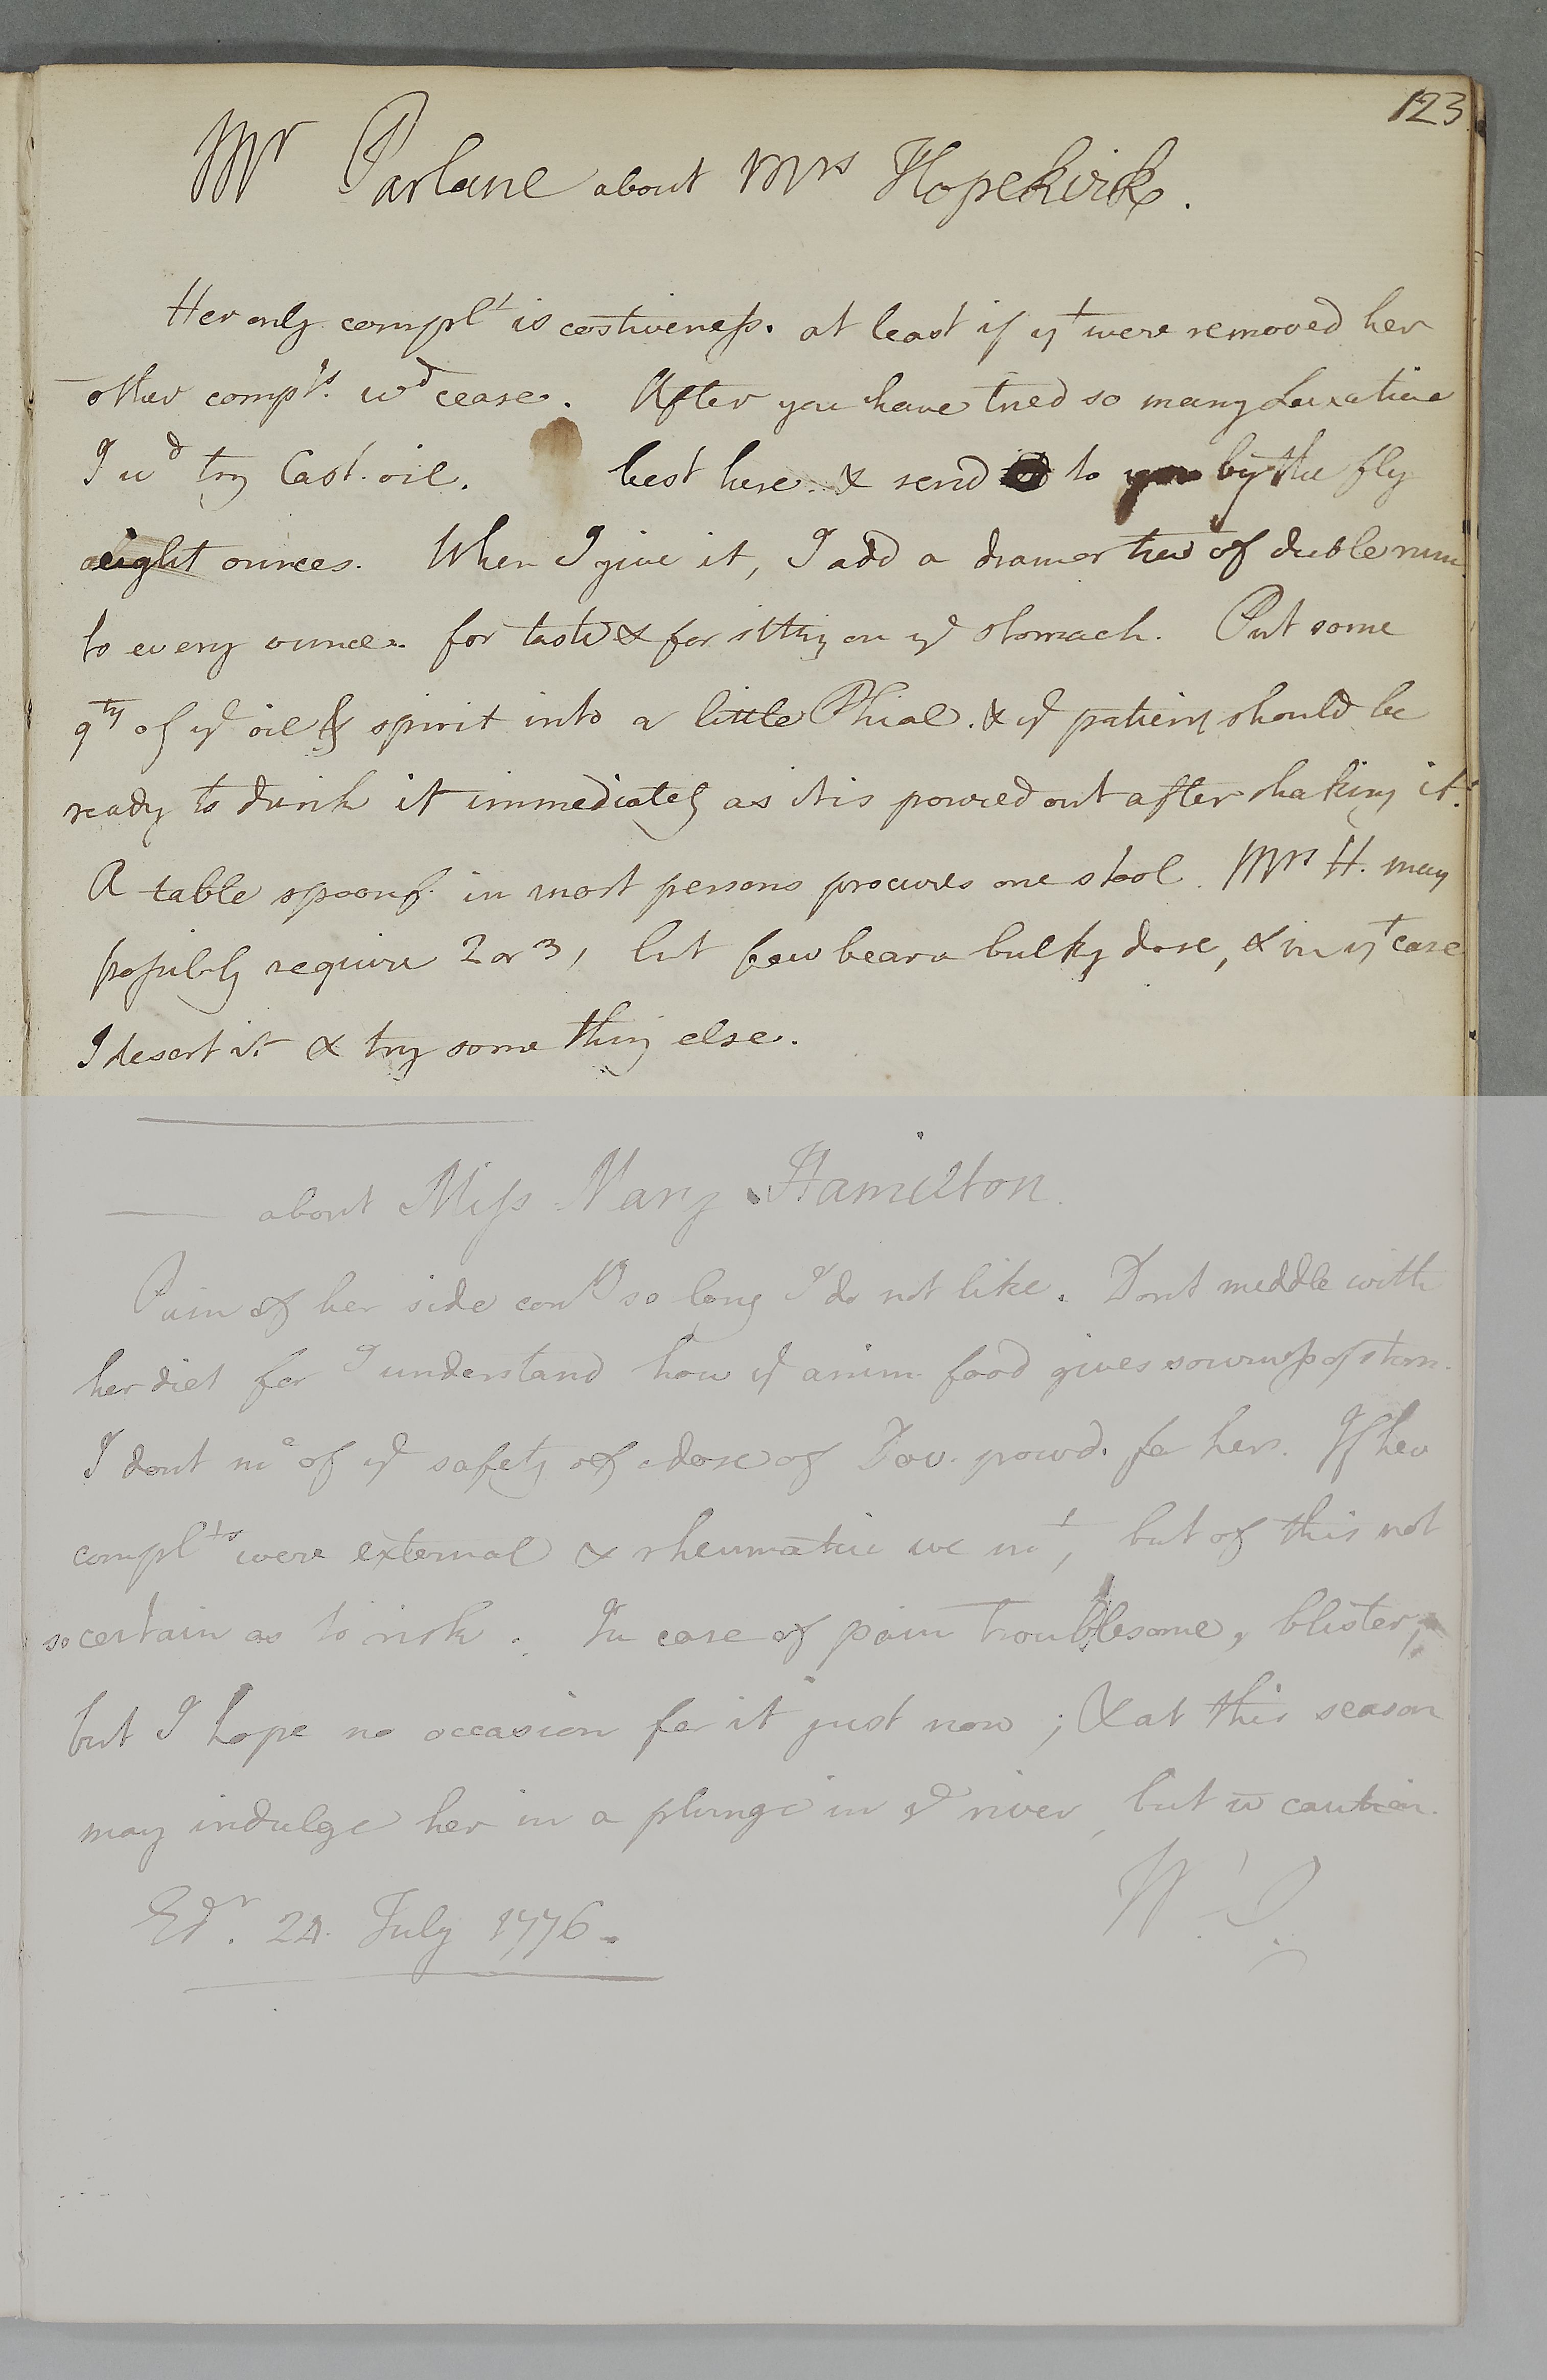 123
Mr Parlane about Mrs Hopekirk.
Her only complt is costiveness. at least if yt were removed her
other complts. wd cease. After you have tried so many Laxative
I wd try Cast. oil. best here. & send to you by the fly
eight ounces. When I give it, I add a dram or two of duble rum
to every ounce. for taste & for sitting on ye stomach. Put some
qty of ye oil & spirit into a little Phial. & ye patient should be
ready to drink it immediately as it is powred out after shaking it.
A table spoonf. in most persons procures one stool. Mrs H. may
possibly require 2 or 3, but few bear a bulky dose, & in yt case
I desert it & try some thing else.
about Miss Mary Hamilton.
Pain of her side contd so long I do not like. Dont meddle with
her diet for I understand how ye anim. food gives sourness of stom.
I dont of ye safety of a dose of Dov. powd. for her. If her
complts were external & rheumatic we mt, but of this not
so certain as to risk. In case of pain troublesome, blister;
but I hope no occasion for it just now; & at this season
may indulge her in a plunge in ye river, but w caution.
Edr. 24. July 1776.